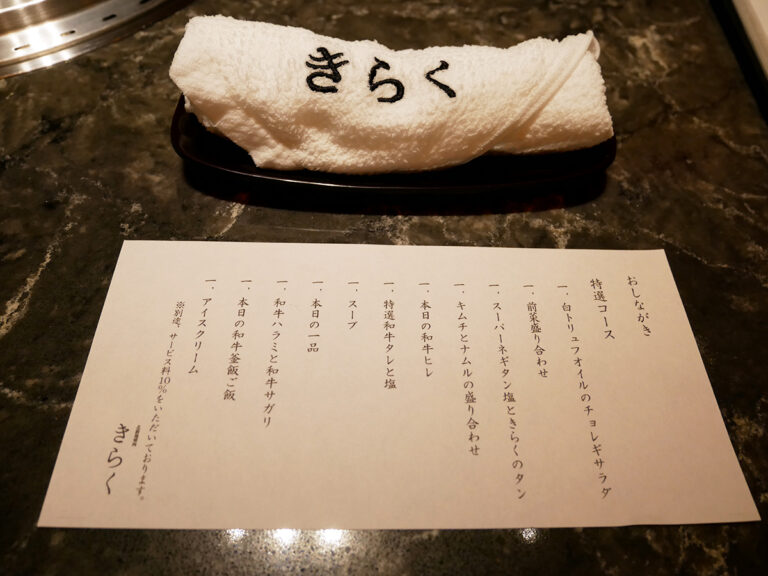 きらく
おしながき
特選コース
一．白トリュフオイルのチョレギサラダ
一．前菜盛り合わせ
一．スーパーネギタン塩ときらくのタン
一．キムチとナムルの盛り合わせ
一．本日の和牛ヒレ
一．特選和牛タレと塩
一．スープ
一．本日の一品
一．和牛ハラミと和牛サガリ
一．本日の和牛釜飯ご飯
一．アイスクリーム
※別途、サービス料10%をいただいております。
きらく